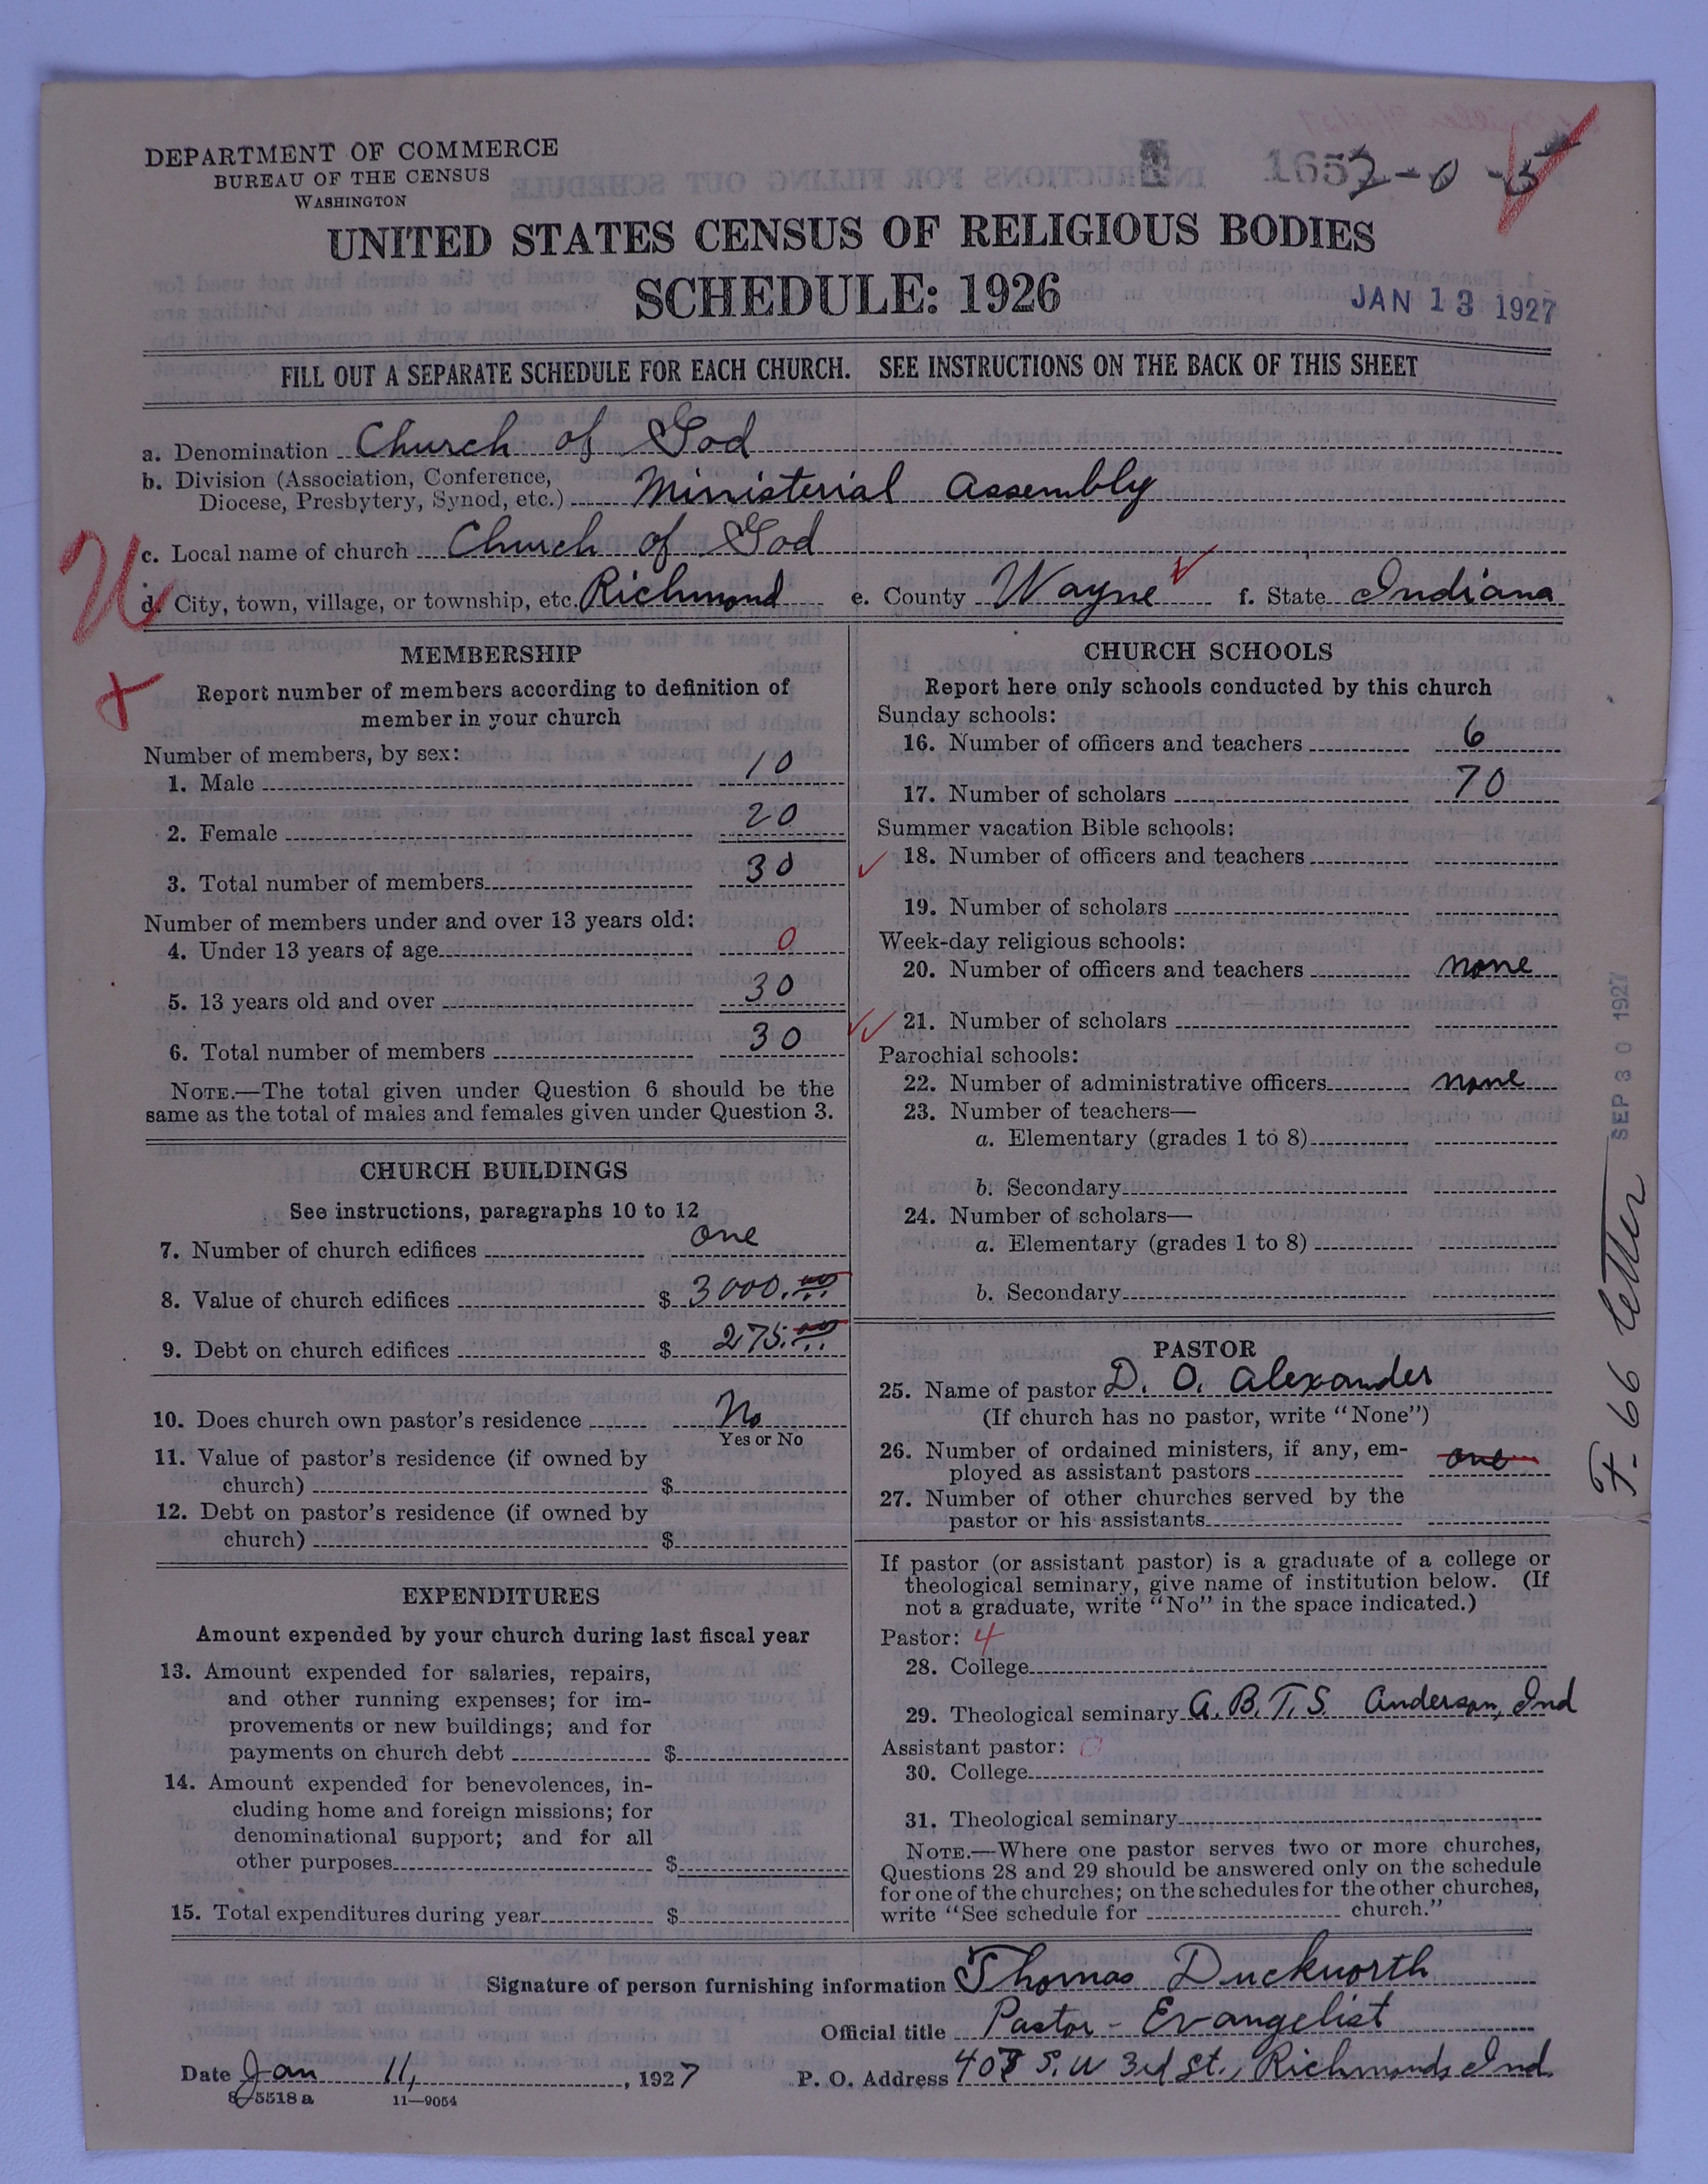 DEPARTMENT OF COMMERCE
BUREAU OF THE CENSUS
WASHINGTON
1652-0-5
UNITED STATES CENSUS OF RELIGIOUS BODIES
SCHEDULE: 1926
JAN 13 1927
FILL OUT A SEPARATE SCHEDULE FOR EACH CHURCH. SEE INSTRUCTIONS ON THE BACK OF THIS SHEET
a. Denomination Church of God
b. Division (Association, Conference,
Diocese, Presbytery, Synod, etc.) Ministerial Assembly
c. Local name of church Church of God
d. City, town, village, or township, etc. Richmond e. County Wayne f. State Indiana
MEMBERSHIP
Report number of members according to definition of
member in your church
Number of members, by sex:
1. Male 10
2. Female 20
3. Total number of members 30
Number of members under and over 13 years old:
4. Under 13 years of age 0
5. 13 years old and over 30
6. Total number of members 30
NOTE.—The total given under Question 6 should be the
same as the total of males and females given under Question 3.
CHURCH BUILDINGS
See instructions, paragraphs 10 to 12
7. Number of church edifices one
8. Value of church edifices $ 3000.00
9. Debt on church edifices $ 275.00
10. Does church own pastor's residence No
Yes or No
11. Value of pastor's residence (if owned by
church) $
12. Debt on pastor's residence (if owned by
church) $
EXPENDITURES
Amount expended by your church during last fiscal year
13. Amount expended for salaries, repairs,
and other running expenses; for im-
provements or new buildings; and for
payments on church debt $
14. Amount expended for benevolences, in-
cluding home and foreign missions; for
denominational support; and for all
other purposes $
15. Total expenditures during year $
CHURCH SCHOOLS
Report here only schools conducted by this church
Sunday schools:
16. Number of officers and teachers 6
17. Number of scholars 70
Summer vacation Bible schools:
18. Number of officers and teachers
19. Number of scholars
Week-day religious schools:
20. Number of officers and teachers none
21. Number of scholars
Parochial schools:
22. Number of administrative officers none
23. Number of teachers—
a. Elementary (grades 1 to 8)
b. Secondary
24. Number of scholars—
a. Elementary (grades 1 to 8)
b. Secondary
PASTOR
25. Name of pastor D. O. Alexander
(If church has no pastor, write "None")
26. Number of ordained ministers, if any, em-
ployed as assistant pastors one
27. Number of other churches served by the
pastor or his assistants
If pastor (or assistant pastor) is a graduate of a college or
theological seminary, give name of institution below. (If
not a graduate, write "No" in the space indicated.)
Pastor: 4
28. College
29. Theological seminary A. B. T. S. Anderson, Ind
Assistant pastor: 0
30. College
31. Theological seminary
NOTE.—Where one pastor serves two or more churches,
Questions 28 and 29 should be answered only on the schedule
for one of the churches; on the schedules for the other churches,
write "See schedule for church."
Signature of person furnishing information Thomas Duckworth
Official title Pastor - Evangelist
Date Jan 11, , 1927 P. O. Address 408 S. W 3rd St., Richmond, Ind.
8-5518 a 11—9054
SEP 30 1927
F. 66 letter